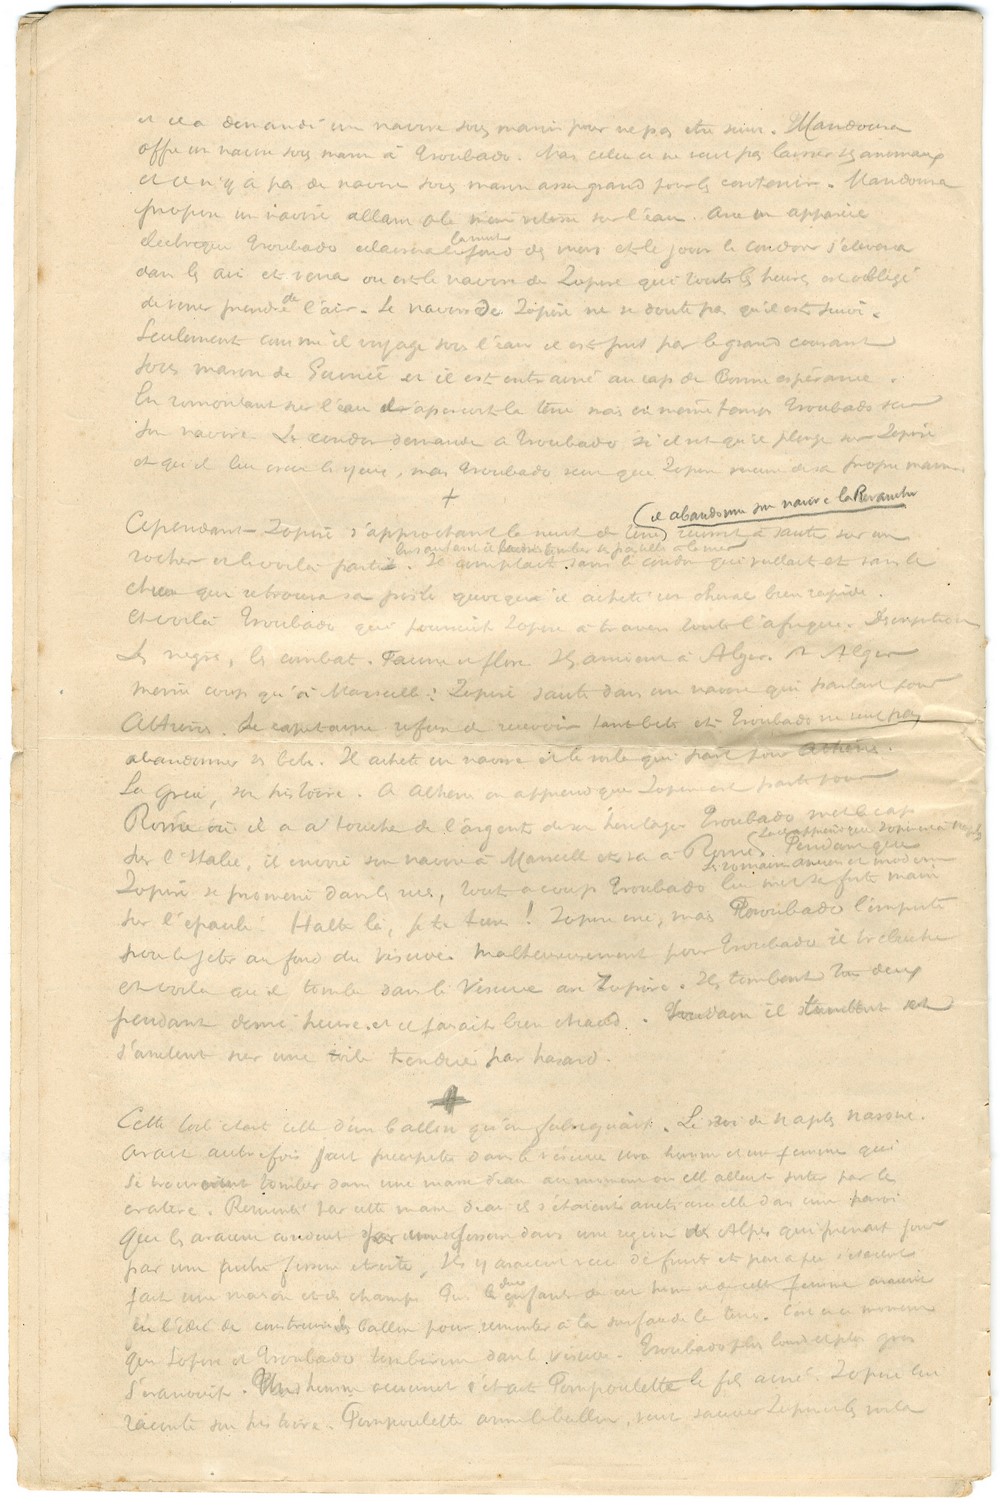 et cela demandé un navire sous marin pour ne pas etre suivi. Mandoura
offre un navire sous marin à Troubado. Mais celui ci ne veut pas laisser ses animaux
et il n'y a pas de navire sous marin assez grand pour les contenir. Mandoura
propose un navire allant de la meme vitesse sur l'eau. Avec un appareil
electrique Troubado eclairera la nuit le fond des mers et le jour le condor s'elevera
dans les airs et verra ou est le navire de Zopire qui toutes les heures est obligé
de venir prendre de l'air. Le navire de Zopire ne se doute pas qu'il est suivi.
Seulement comme il voyage sous l'eau il est pris par le grand courant
sous marin de Guinée et il est entrainé au cap de Bonne espérance.
En remontant sur l'eau il aperçoit la terre mais en meme temps Troubado sur
son navire. Le condor demande à Troubado si il veut qu'il plonge sur Zopire
et qu'il lui creve les yeux, mais Troubado veut que Zopire meure de sa propre main.
+
(il abandonne son navire la Revanche
Cependant Zopire s'approchant la nuit de terre reussit à sauter sur un
rocher et le voila parti. Il comptait sans le condor qui veillait et sans le
en sautant il laisse tomber à la mer
chien qui retrouva sa piste quoiqu'il achete un cheval bien rapide.
Et voilà Troubado qui poursuit Zopire à travers toute l'afrique. Description
des negres, les combats. Faune et flore. Ils arrivent à Alger. A Alger
meme coup qu'à Marseille: Zopire saute dans un navire qui partait pour
Athènes. Le capitaine refuse de recevoir tant de betes et Troubado ne veut pas
abandonner ses betes. Il achete un navire à voile qui part pour Athènes.
La Grece, son histoire. A Athenes on apprend que Zopire est parti pour
Rome où il a à toucher de l'argent de son heritage. Troubado met le cap
sur l'Italie, il envoie son navire à Marseille et va à Rome. Pendant que
la il apprend que Zopire est à Naples
les romains anciens et modernes
Zopire se promene dans les rues, tout à coup Troubado lui met sa forte main
sur l'epaule: Halte là, je te tiens! Zopire crie, mais Troubado l'emporte
pour le jeter au fond du Vesuve. Malheureusement pour Troubado il trebuche
et voila qu'il tombe dans le Vesuve avec Zopire. Ils tombent tous deux
pendant demi heure et il faisait bien chaud. Soudain ils
s'arretent sur une toile tendue par hasard.
+
Cette toile etait celle d'un ballon qu'on fabriquait. Le roi de Naples
avait autrefois fait precipiter dans le vésuve un homme et une femme qui
tomber dans une mare d'eau au moment ou elle allait sortir par le
cratere. Remontés par cette mare d'eau ils s'étaient arretés dans une paroi
qui les avaient conduit dans une region des Alpes qui prenait jour
par une petite fissure etroite, Ils y avaient vecu de fruits et peu à peu s'etaient
fait une maison et des champs. Puis les deux enfants de cet homme et de cette femme avaient
eu l'idée de construire des ballons pour remonter à la surface de la terre. C'est à ce moment
que Zopire et Troubado tomberent dans le vésuve. Troubado plus lourd et plus gros
s'evanouit. Un homme accourut c'etait Pompoulette le fils ainé. Zopire lui
raconte son histoire. Pompoulette arme le ballon, veut sauver Zopire les voila